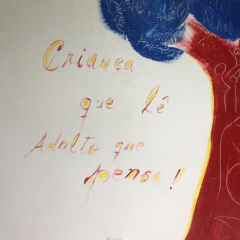 Criança
que lê
Adulto que
Apensa!